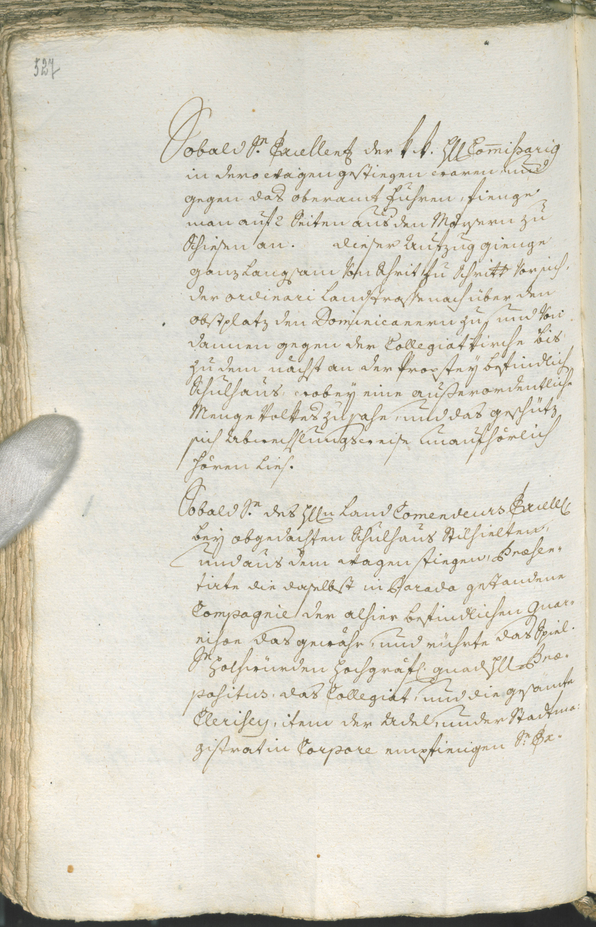 527
Sobald Sr. Excellenz der k. k. HH Commissarig
in dero wagen gestiegen waren, und
gegen das oberamt fuhren, fienge
man auf 2 Seiten aus den Mörsern zu
schiesen an. dieser Aufzug gienge
ganz Langsam von Schritt zu Schritt vor sich,
der ordinari Landstrasse nach über den
obstplatz den Dominicanern zu, und von
dannen gegen der Collegiat Kirche bis
zu dem nächst an der Propstey befindlich
Schulhaus, wobey eine ausserordentliche
Menge Volkes zu sahe, und das geschütz
sich Abwechslungsweise unaufhörlich
hören lies.
Sobald Sr. des HHn Land Comendeurs Excell.
bey obgedachten Schulhaus Stilhielten,
und aus dem wagen stiegen, Præsen-
tirte die daselbst in Parada gestandene
Compagnie der alhier befindlichen Guar-
nison das gewähr, und rührte das Spiel.
Sr. Hochwürden Hochgräfl. gnad HH Præ-
positus, das Collegiat, und die gesamte
Clerisey, item der Adel, und er Stadtma-
gistrat in Corpore empfiengen Sr. Ex-